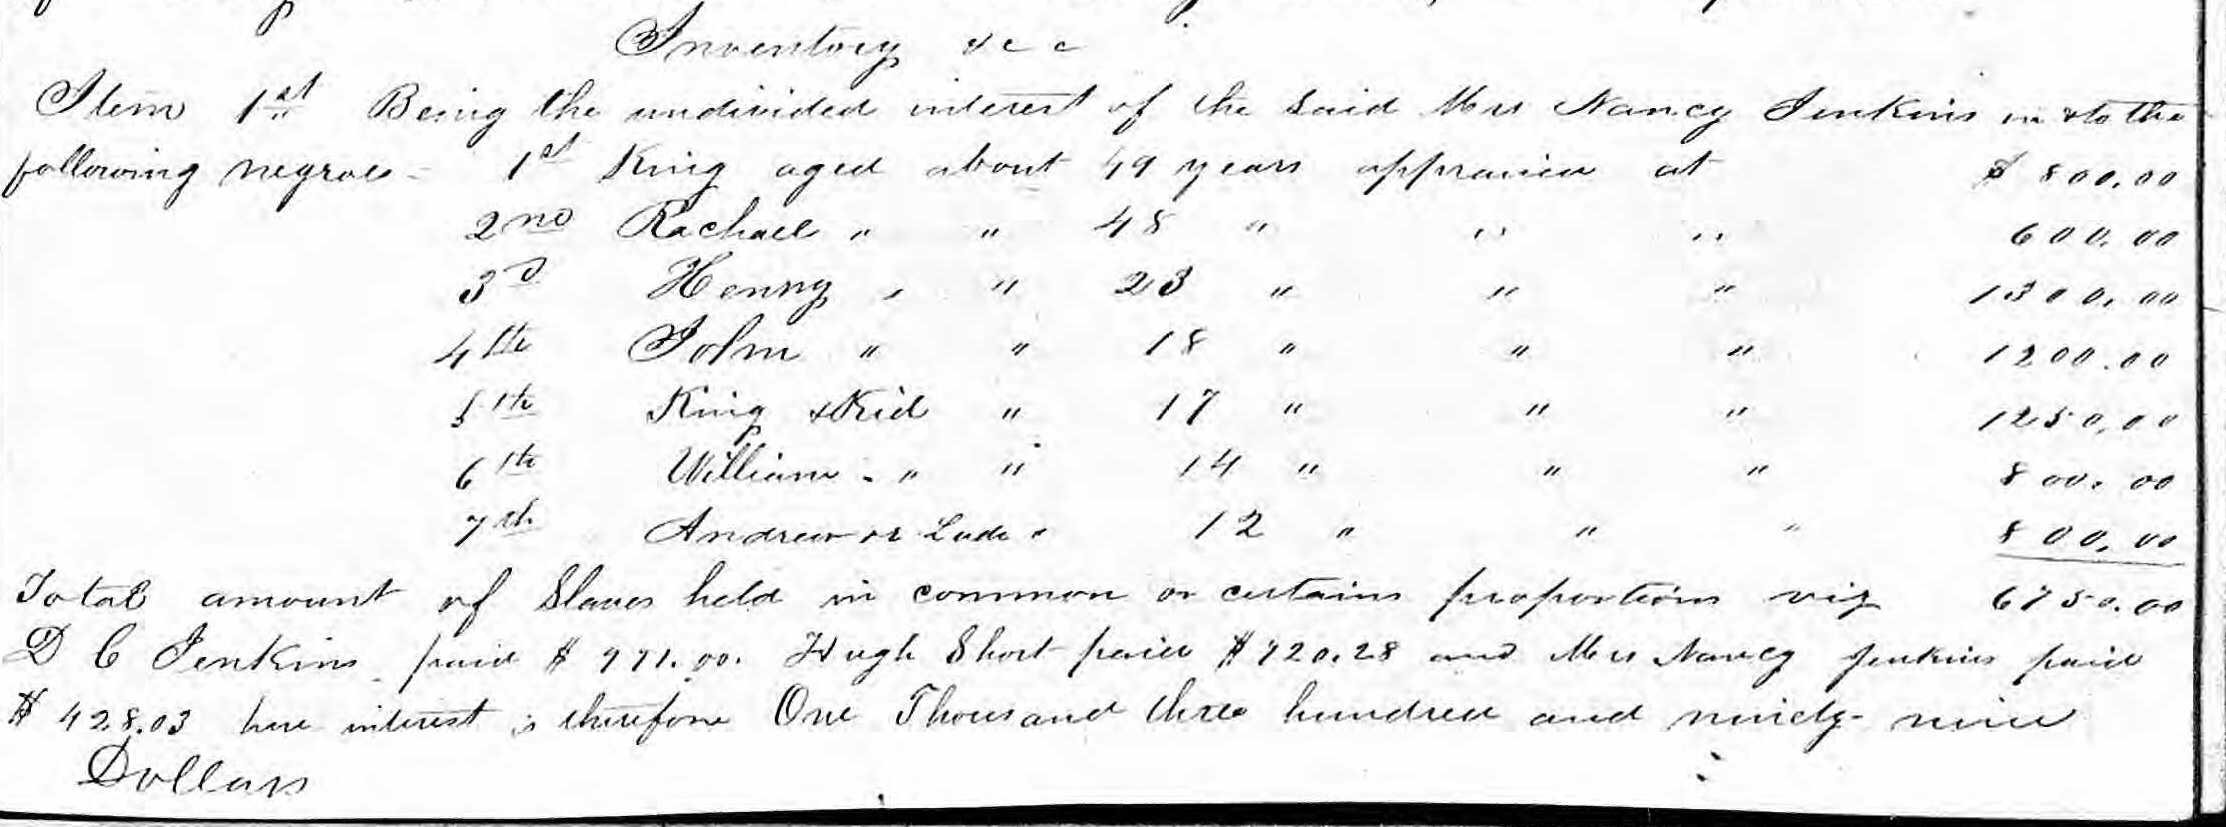 Inventory &c c
Item 1st Being the undivided interest of the said Mrs Nancy Jenkins in & to the
following negroes - 1st King aged about 49 years appraised at $ 800.00
2nd Rachael " " 48 " " " 600.00
3d Henny " " 23 " " " 1300.00
4th John " " 18 " " " 1200.00
5th King " 17 " " " 1250.00
6th William - " " 14 " " " 800.00
7th Andrew or " 12 " " " 800.00
Total amount of Slaves held in common or certain proportions viz 6750.00
D C Jenkins paid $ 971.00. Hugh Short paid $ 720.28 and Mrs Nancy Jenkins paid
$ 428.03 here interest is therefore One Thousand three hundred and ninety-nine
Dollars